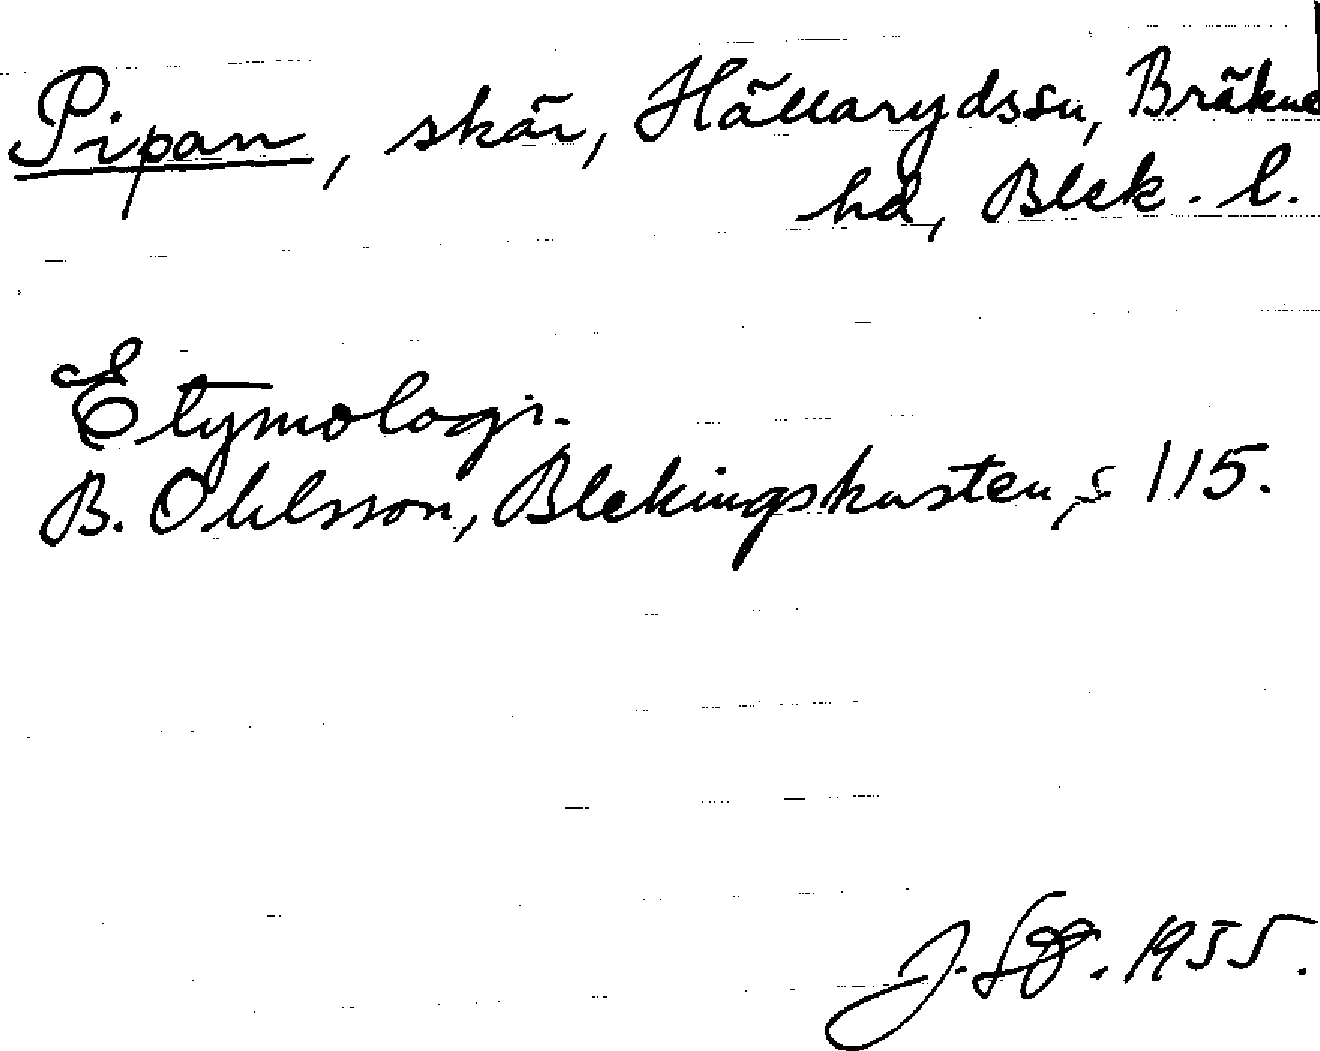 Pipan, skär, Hällarydssn, Bräkne
hd, Blek. l.
Etymologi.
B. Ohlsson, Blekingskusten, s 115.
J. 1955.